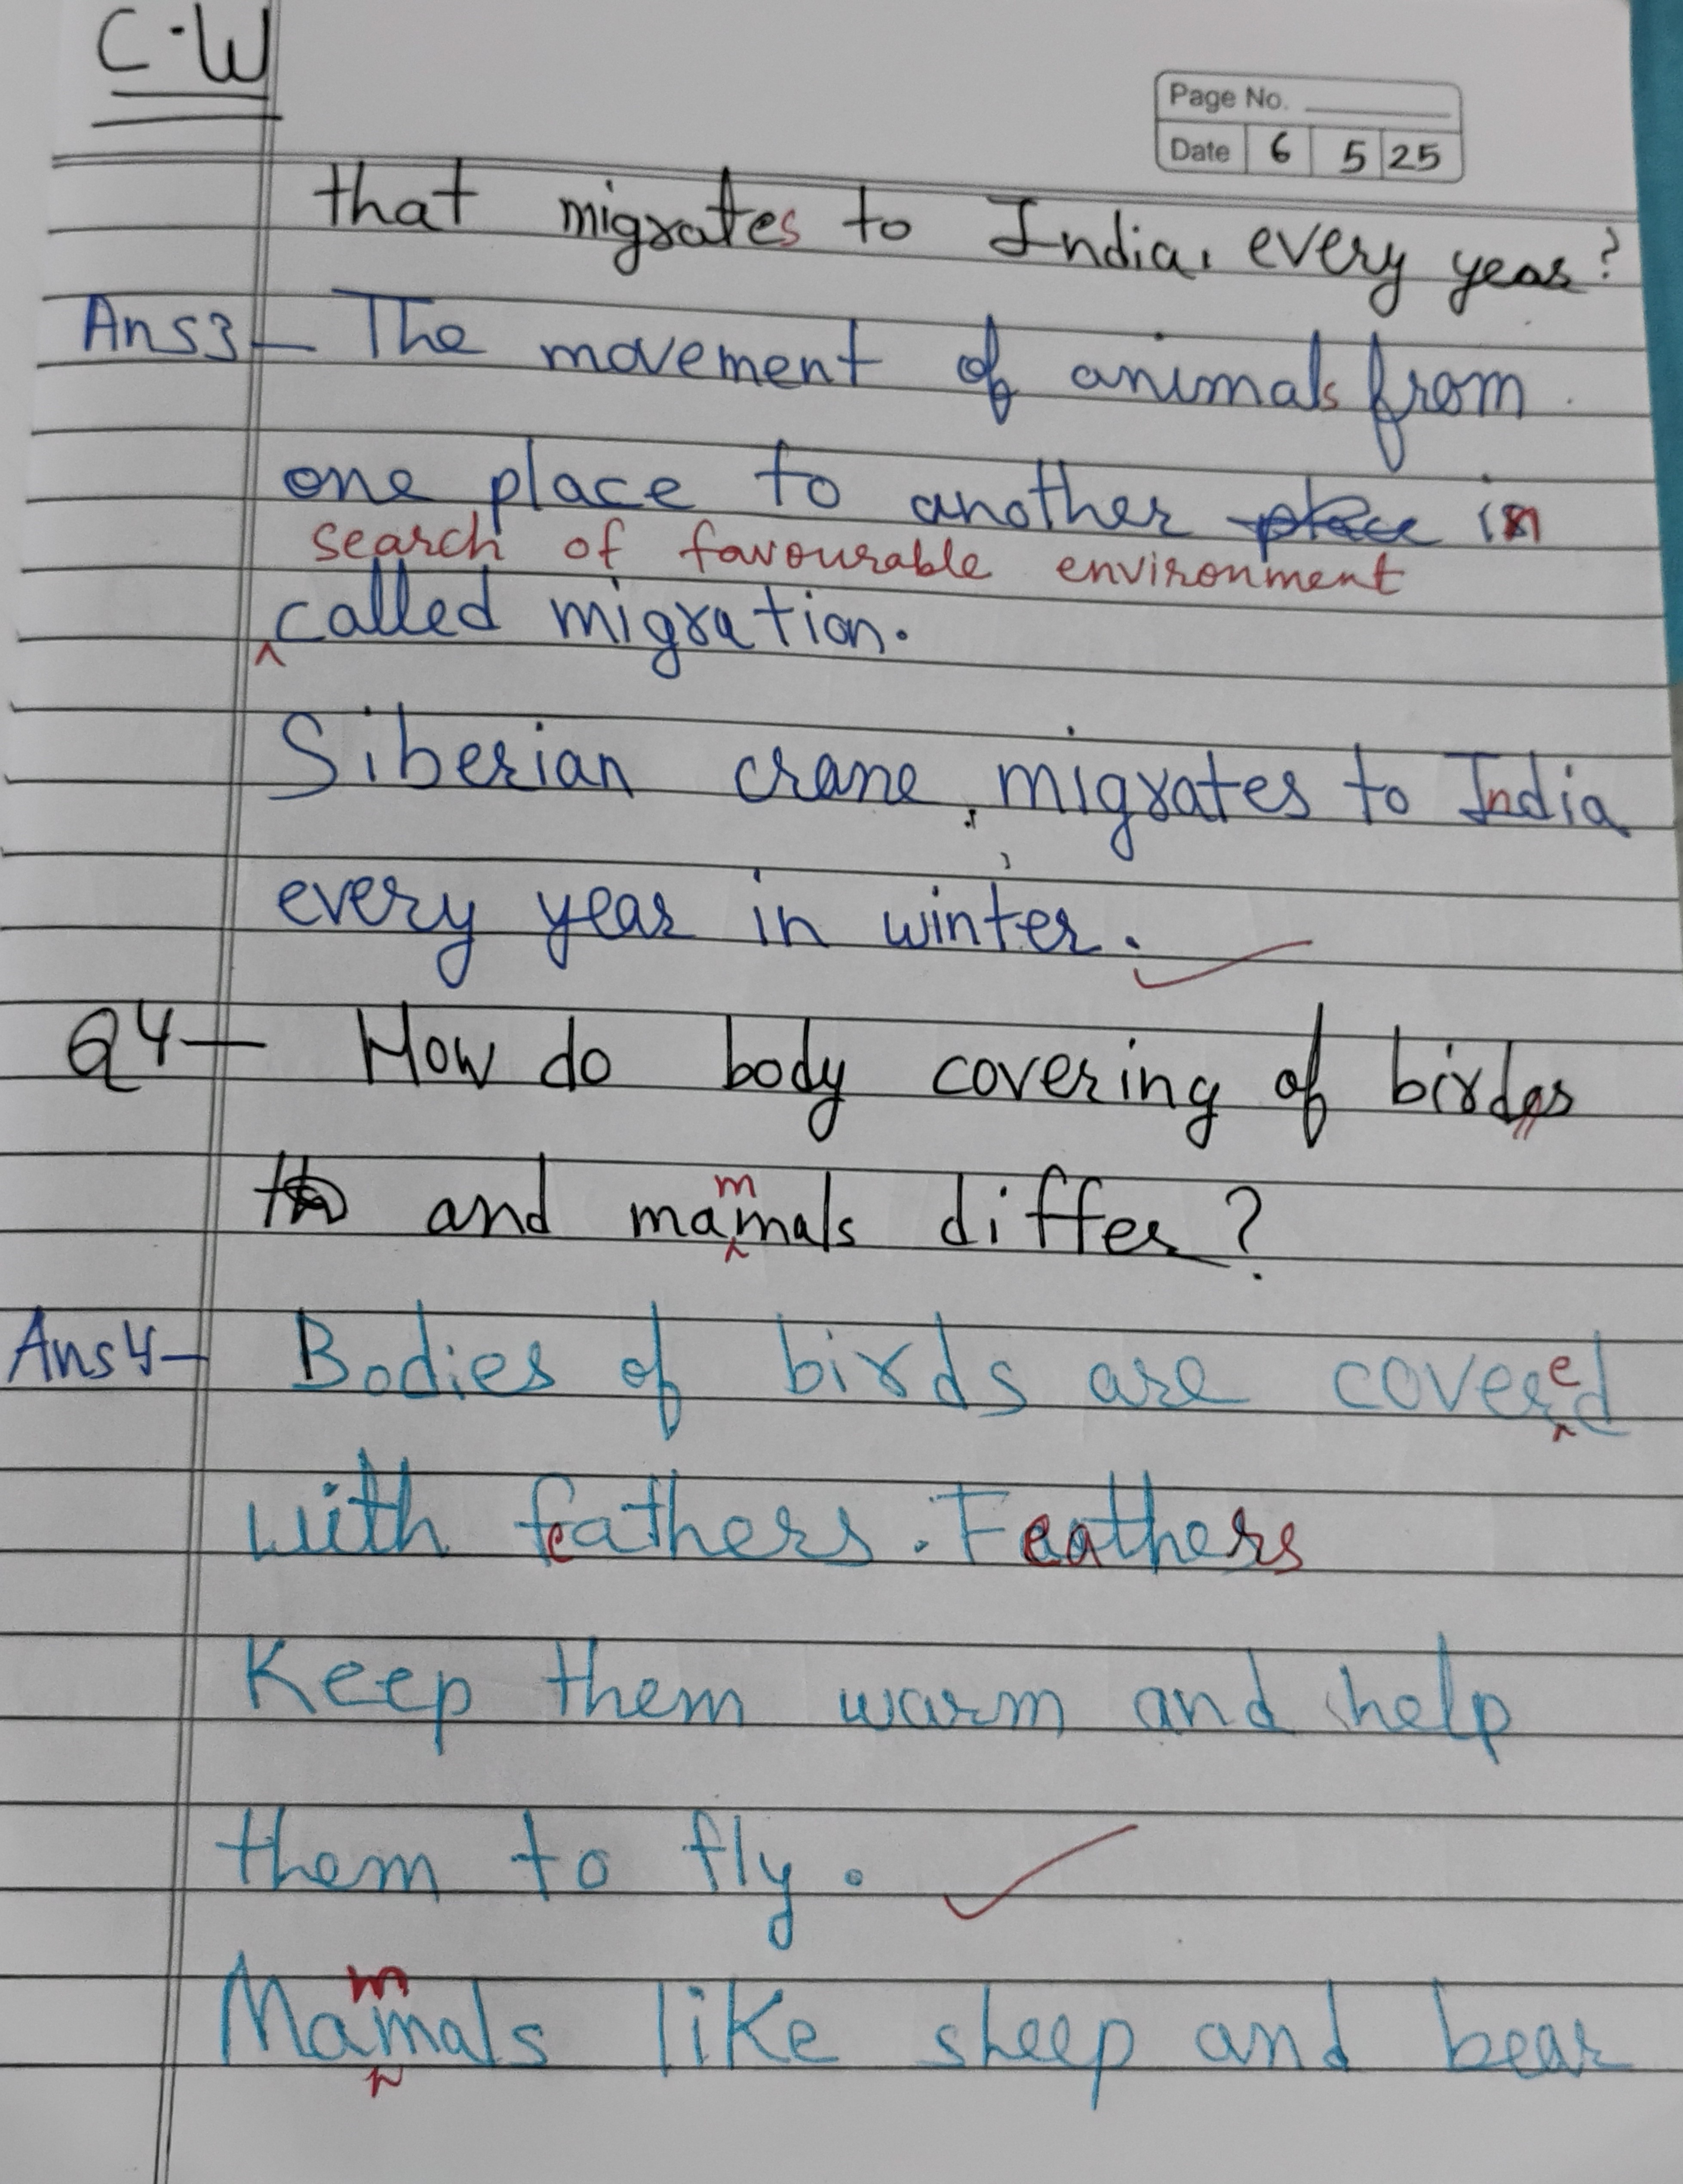 C·W
Page No.
Date 6 5 25
that migrates to India, every year?
Ans3- The movement of animals from
one place to another place in
search of favourable environment
called migration.
Siberian crane, migrates to India
every year in winter.
Q4- How do body covering of birds
and mammals differ?
Ans4- Bodies of birds are covered
with feathers. Feathers
Keep them warm and help
them to fly.
Mammals like sheep and bear